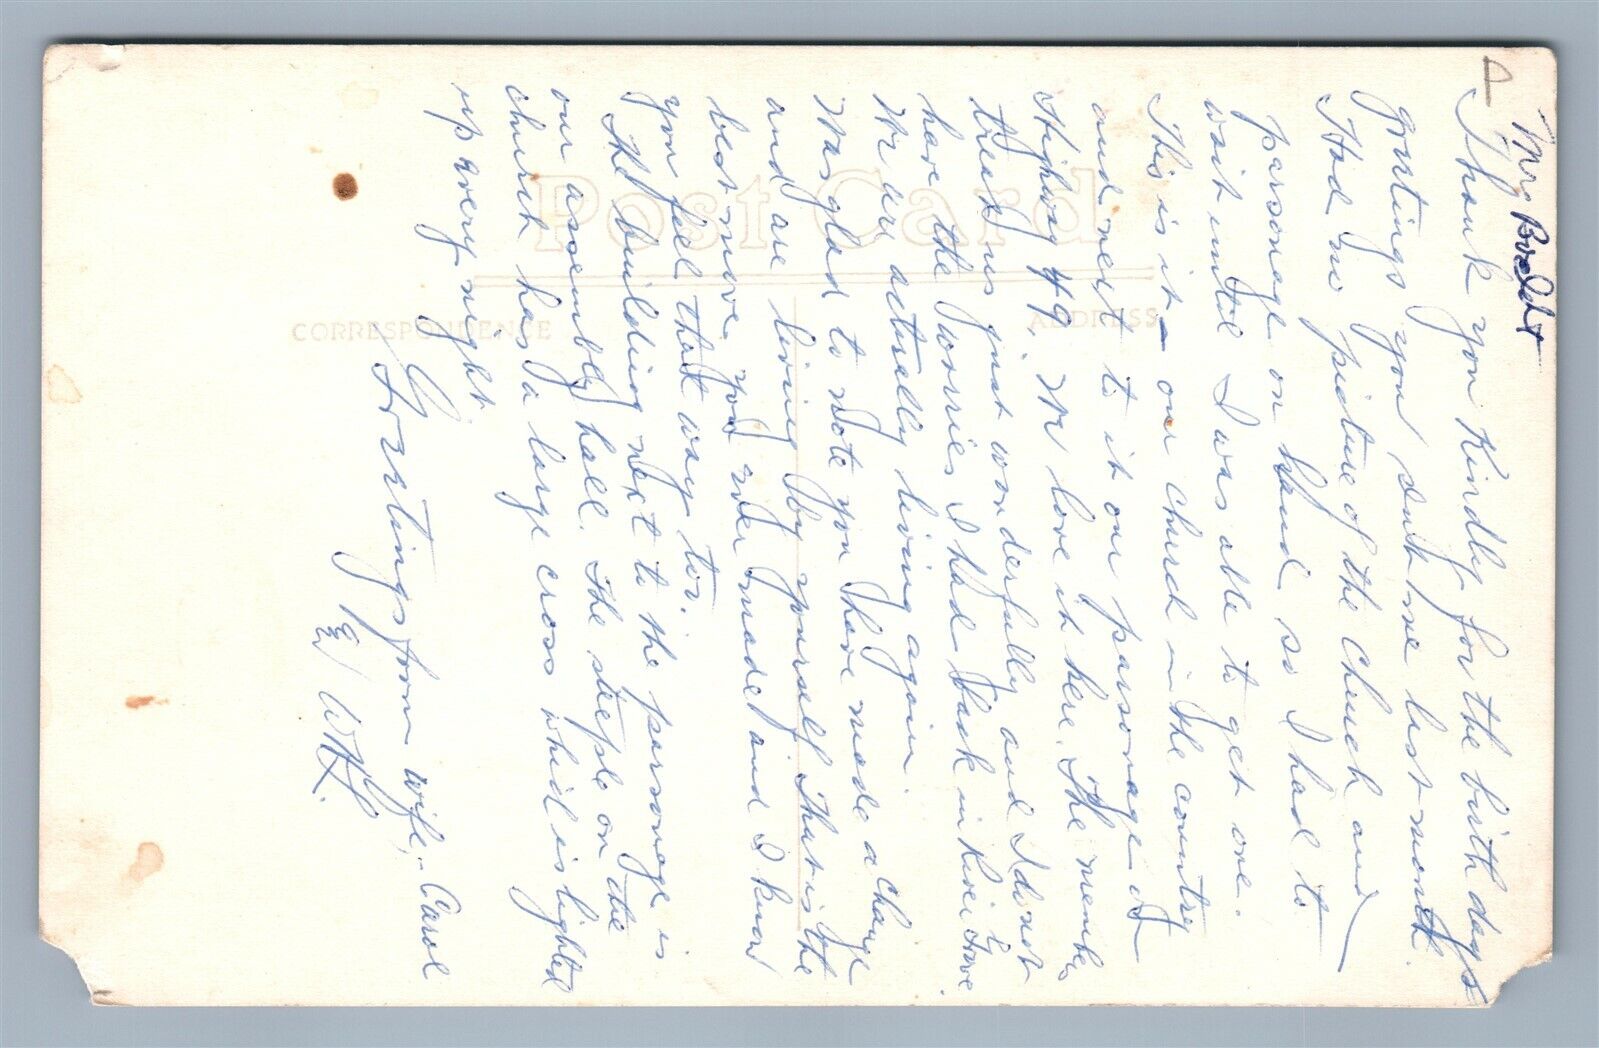 Mr. Bradt
Thank you Kindly for the birthdays
greetings you sent me last month.
Had no picture of the church and
parsonage on hand so I had to
wait until I was able to get one.
This is it – our church in the country
and next to it our parsonage at
Highway 49. We love it here. The members
treat us just wonderfully and I do not
have the worries I had back in
We are actually living again.
Was glad to note you have made a change
and are living by yourself. That is the
best move you ever made and I know
you feel that way too.
The building next to the parsonage is
our assembly hall. The steeple on the
church has a large cross which is lighted
up every night.
Greetings from wife, Carol
Post Card
CORRESPONDENCE
ADDRESS